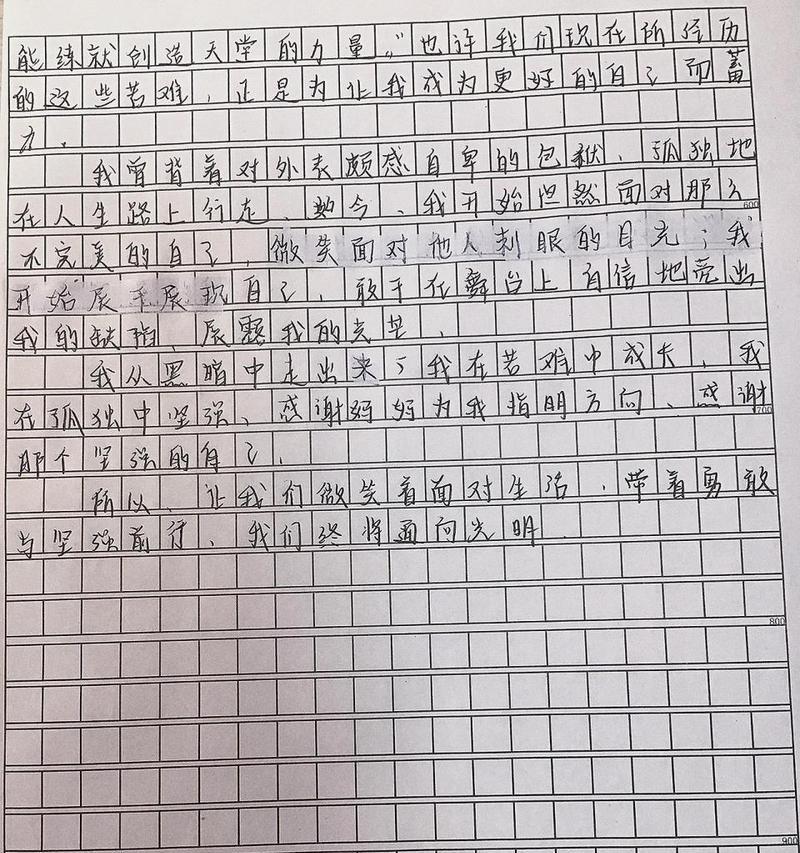 能练就创造天堂的力量。”也许我们现在所经历
的这些苦难，正是为让我成为更好的自己而蓄
力。
我曾背着对外表颇感自卑的包袱、孤独地
在人生路上行走、如今、我开始坦然面对那么
600
不完美的自己，微笑面对他人刺眼的目光；我
开始展手展现自己，敢于在舞台上自信地亮出
我的缺陷、展露我的光芒．
我从黑暗中走出来了我在苦难中成长，我
在孤独中坚强、感谢妈妈为我指明方向、感谢
700
那个坚强的自己．
所以、让我们微笑着面对生活，带着勇敢
与坚强前行、我们终将面向光明．
800
900